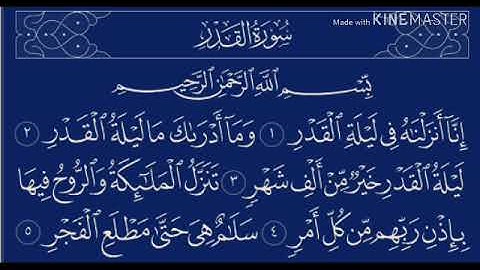 Made with KINEMASTER
سُورَةُ القَدْرِ
بِسْمِ اللَّهِ الرَّحْمَٰنِ الرَّحِيمِ
إِنَّا أَنزَلْنَاهُ فِي لَيْلَةِ الْقَدْرِ ١ وَمَا أَدْرَىٰكَ مَا لَيْلَةُ الْقَدْرِ ٢
لَيْلَةُ الْقَدْرِ خَيْرٌ مِّنْ أَلْفِ شَهْرٍ ٣ تَنَزَّلُ الْمَلَٰٓئِكَةُ وَالرُّوحُ فِيهَا
بِإِذْنِ رَبِّهِم مِّن كُلِّ أَمْرٍ ٤ سَلَٰمٌ هِيَ حَتَّىٰ مَطْلَعِ الْفَجْرِ ٥